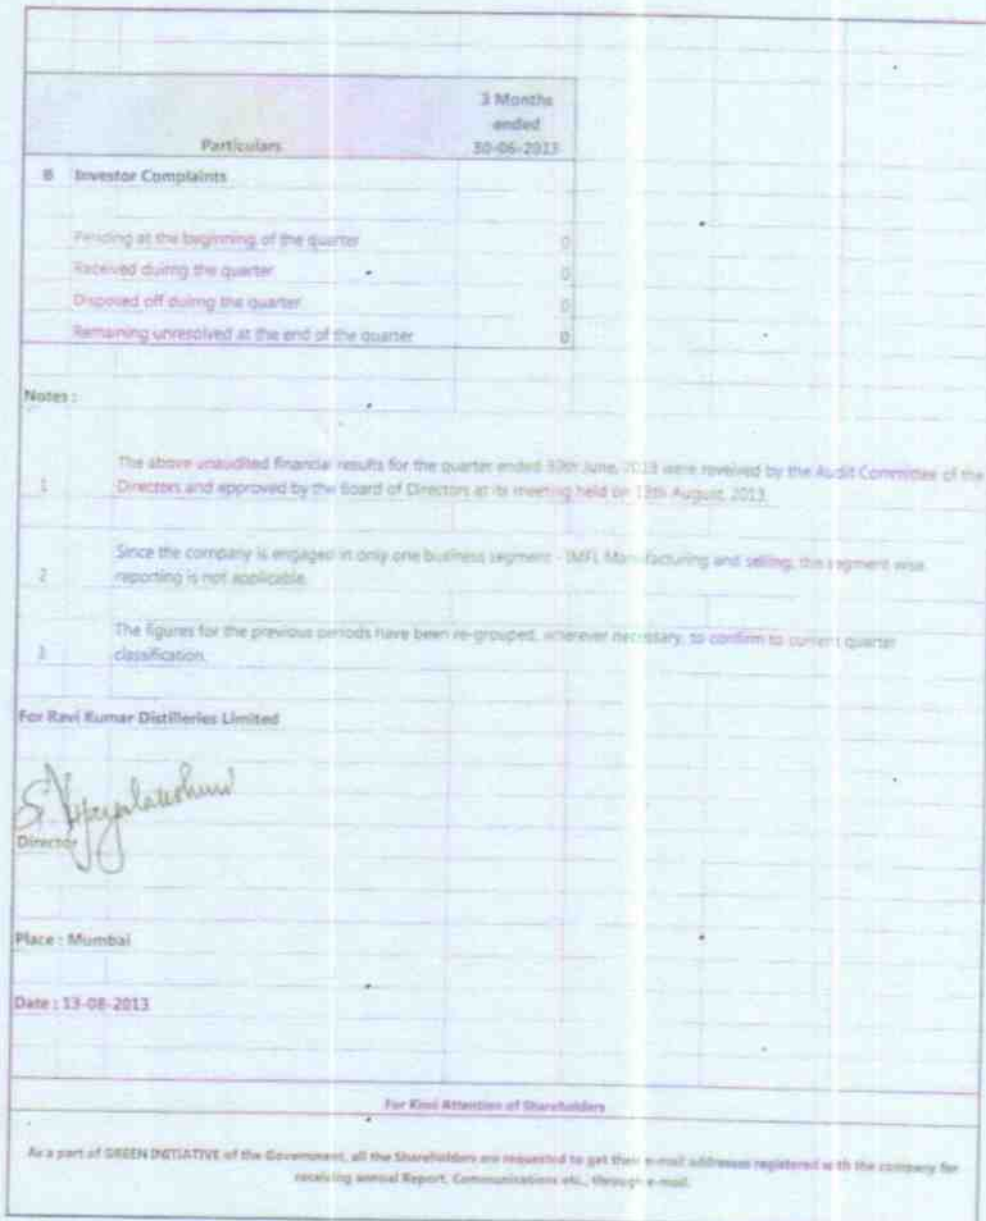 3 Months
ended
Particulars 30-06-2013
B Investor Complaints
Pending at the beginning of the quarter 0
Received duirng the quarter 0
Disposed off duirng the quarter 0
Remaining unresolved at the end of the quarter 0
Notes :
The above unaudited financial results for the quarter ended 30th June, 2013 were reveived by the Audit Committee of the
1 Directors and approved by the Board of Directors at its meeting held on 13th August, 2013.
Since the company is engaged in only one business segment - IMFL Manufacturing and selling, the segment wise
2 reporting is not applicable.
The figures for the previous periods have been re-grouped, wherever necessary, to confirm to current quarter
3 classification.
For Ravi Kumar Distilleries Limited
Director
Place : Mumbai
Date : 13-08-2013
For Kind Attention of Shareholders
As a part of GREEN INITIATIVE of the Government, all the Shareholders are requested to get their e-mail addresses registered with the company for
receiving annual Report, Communications etc., through e-mail.